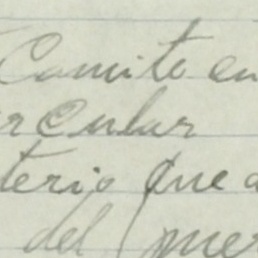 Comite en
ercular
terio que a
del